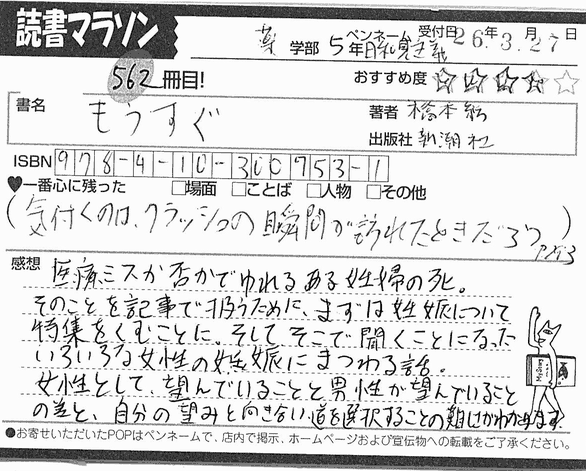 読書マラソン
薬 学部 5年 ペンネーム 受付日 26.3.27日
562冊目! おすすめ度
書名 もうすぐ 著者 橋本紡
出版社 新潮社
ISBN 978-4-10-300753-1
♥一番心に残った □場面 □ことば □人物 □その他
(気付くのは、クラッシュの瞬間が訪れたときだろう)
感想 医療ミスか否かでゆれるある妊婦の死。
そのことを記事で扱うために、まずは妊娠について
特集をくむことに。そしてそこで聞くことになった
いろいろな女性の妊娠にまつわる話。
女性として、望んでいることと男性が望んでいること
の差と、自分の望みと向き合い道を選択することの難しさがわかります
●お寄せいただいたPOPはペンネームで、店内で掲示、ホームページおよび宣伝物への転載をご了承ください。